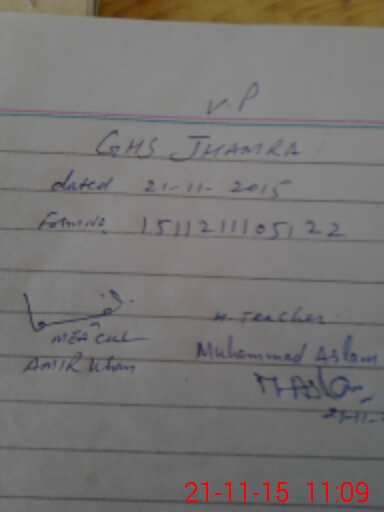 V.P
GHS JHAMRA
dated 21-11-2015
Form No. 1511211105122
MEA
AMIR Khan
H. Teacher
Muhammad Aslam
MAslam
21-11-
21-11-15 11:09